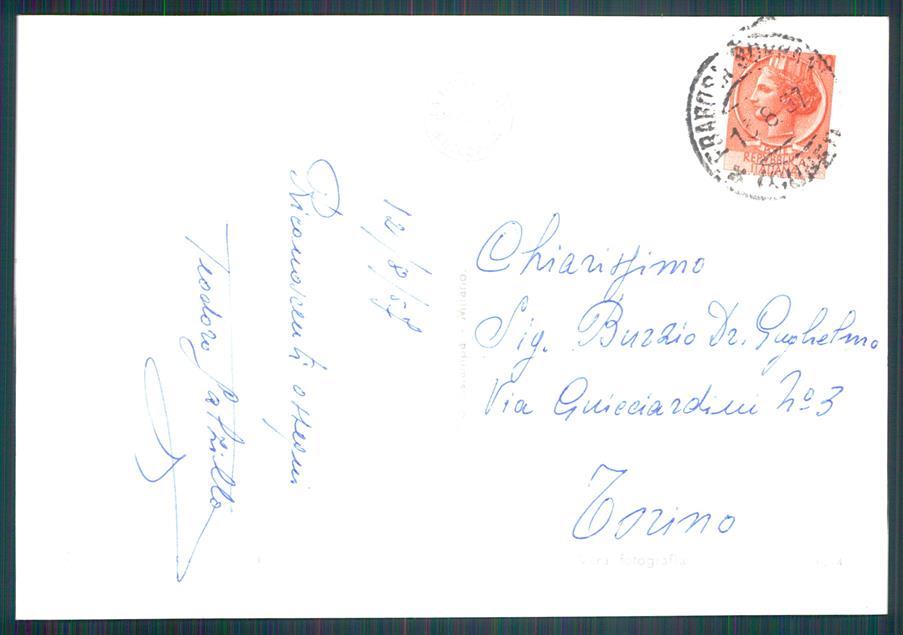 12/8/57
Riconoscenti ossequi
Teodoro
Chiarissimo
Sig. Burzio Dr. Guglielmo
Via Guicciardini No 3
Torino
REPUBBLICA
ITALIANA
Vera fotografia
Milano